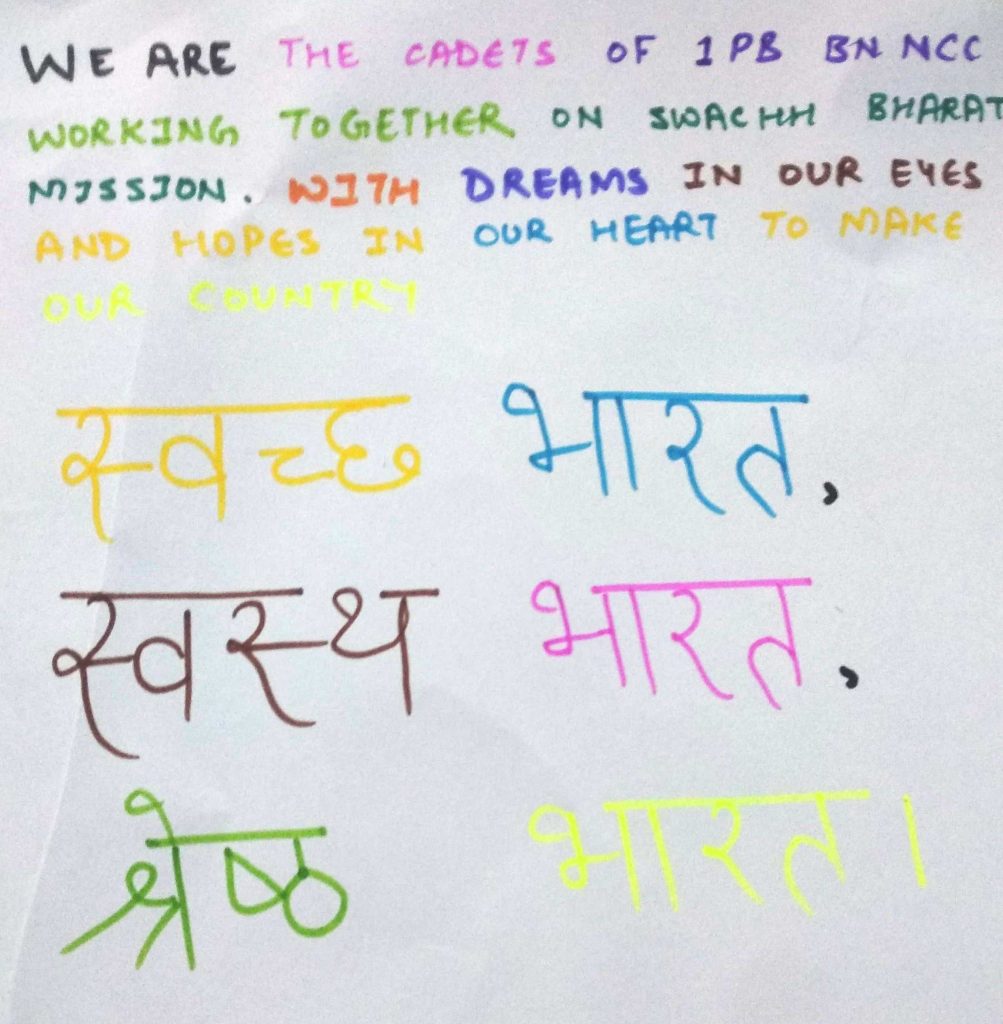 WE ARE THE CADETS OF 1 PB BN NCC
WORKING TOGETHER ON SWACHH BHARAT
MISSION. WITH DREAMS IN OUR EYES
AND HOPES IN OUR HEART TO MAKE
OUR COUNTRY
स्वच्छ भारत,
स्वस्थ भारत,
श्रेष्ठ भारत।